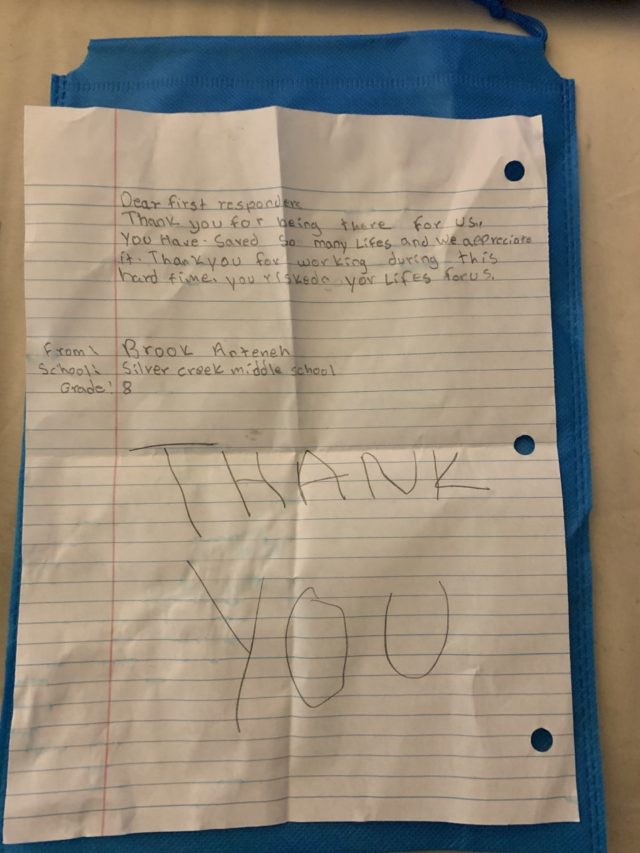 Dear first responders
Thank you for being there for us,
You Have Saved So many Lifes and we appreciate
it. Thankyou for working during this
hard time, you riskeda yor Lifes for us.
From: Brook Anteneh
School: Silver creek middle school
Grade: 8
THANK
YOU